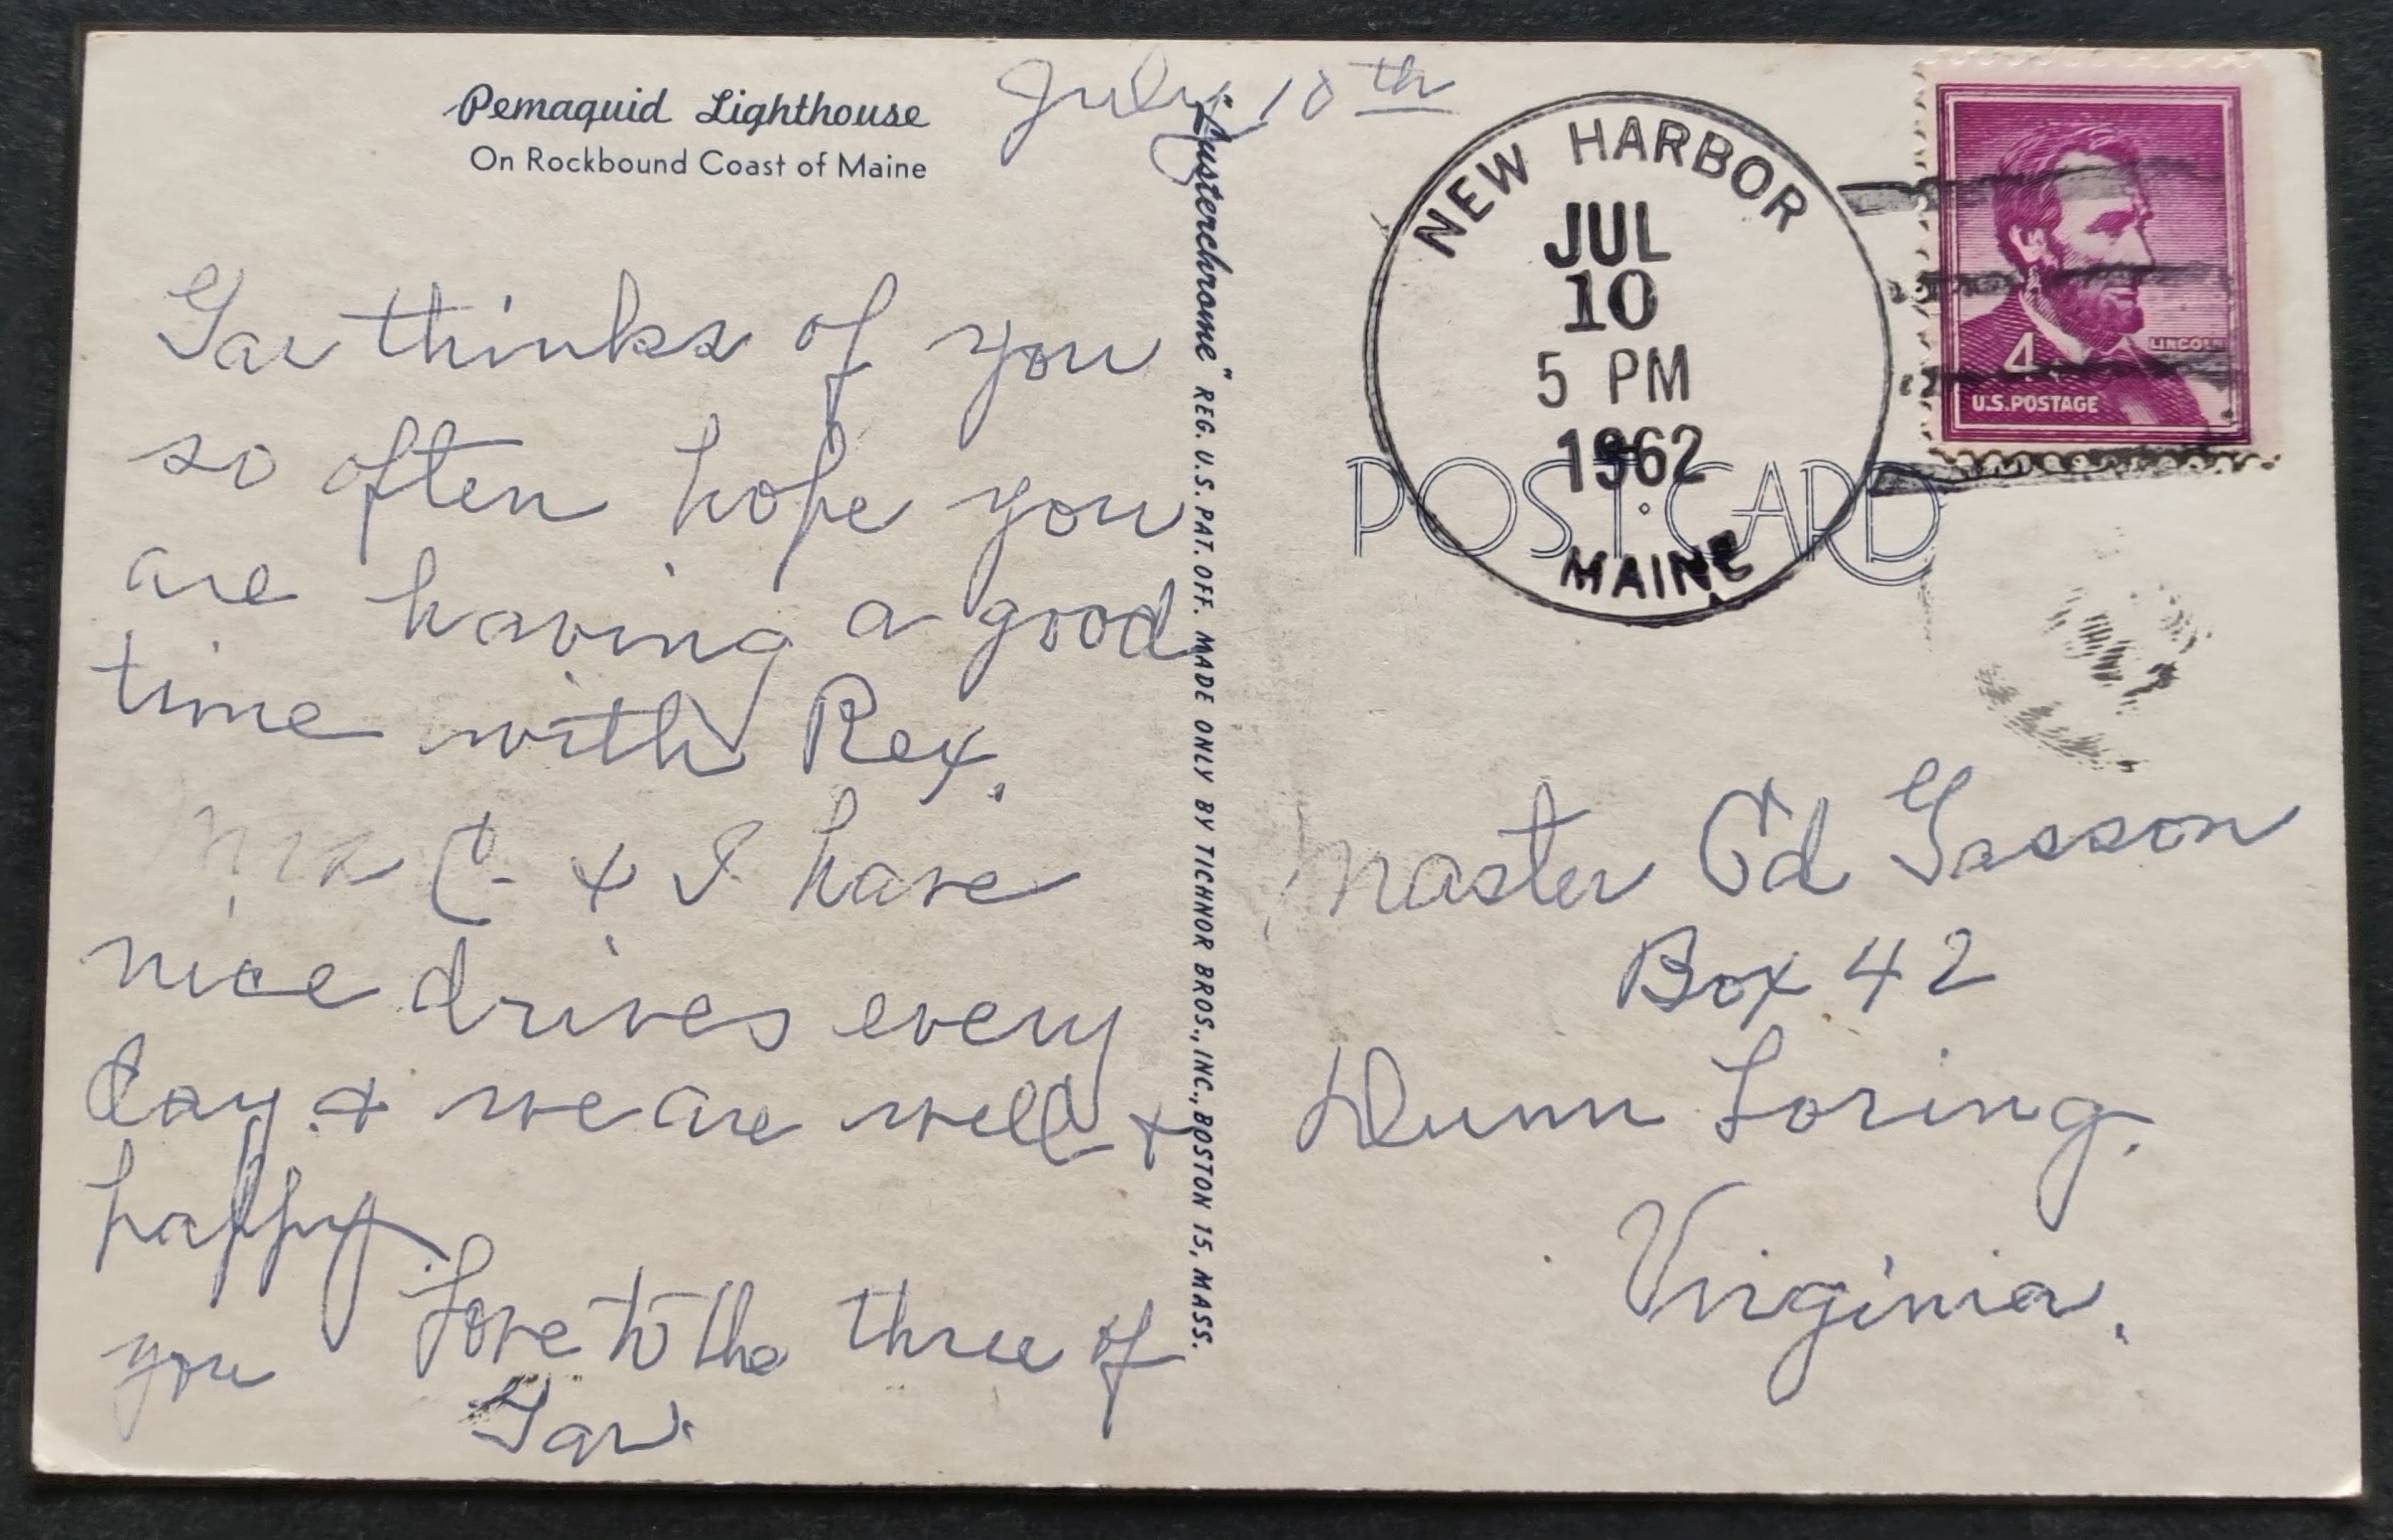 Pemaquid Lighthouse
On Rockbound Coast of Maine
July 10th
Gar thinks of you
so often hope you
are having a good
time with Rex.
Mrs C. & I have
nice drives every
day & we are well &
happy.
Love to the three of
you
Gar.
"Lusterchrome" REG. U.S. PAT. OFF. MADE ONLY BY TICHNOR BROS., INC., BOSTON 15, MASS.
NEW HARBOR
JUL
10
5 PM
1962
MAINE
LINCOLN
4¢
U.S. POSTAGE
POST CARD
Master Ed Gasson
Box 42
Dunn Loring.
Virginia.